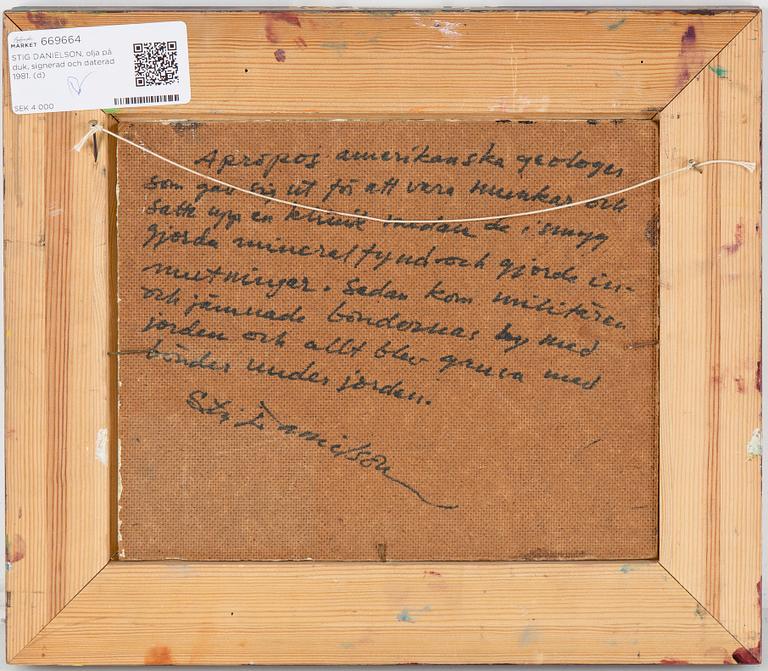 MARKET 669664
STIG DANIELSON, olja på
duk, signerad och daterad
1981. (d)
SEK 4 000
Apropos amerikanska geologer
som gav sig ut för att vara munkar och
satte upp en klinik medan de i smyg
gjorde mineralfynd och gjorde in-
mutningar. Sedan kom militären
och jämnade böndernas by med
jorden och allt blev gruva med
bönder under jorden.
Stig Danielson